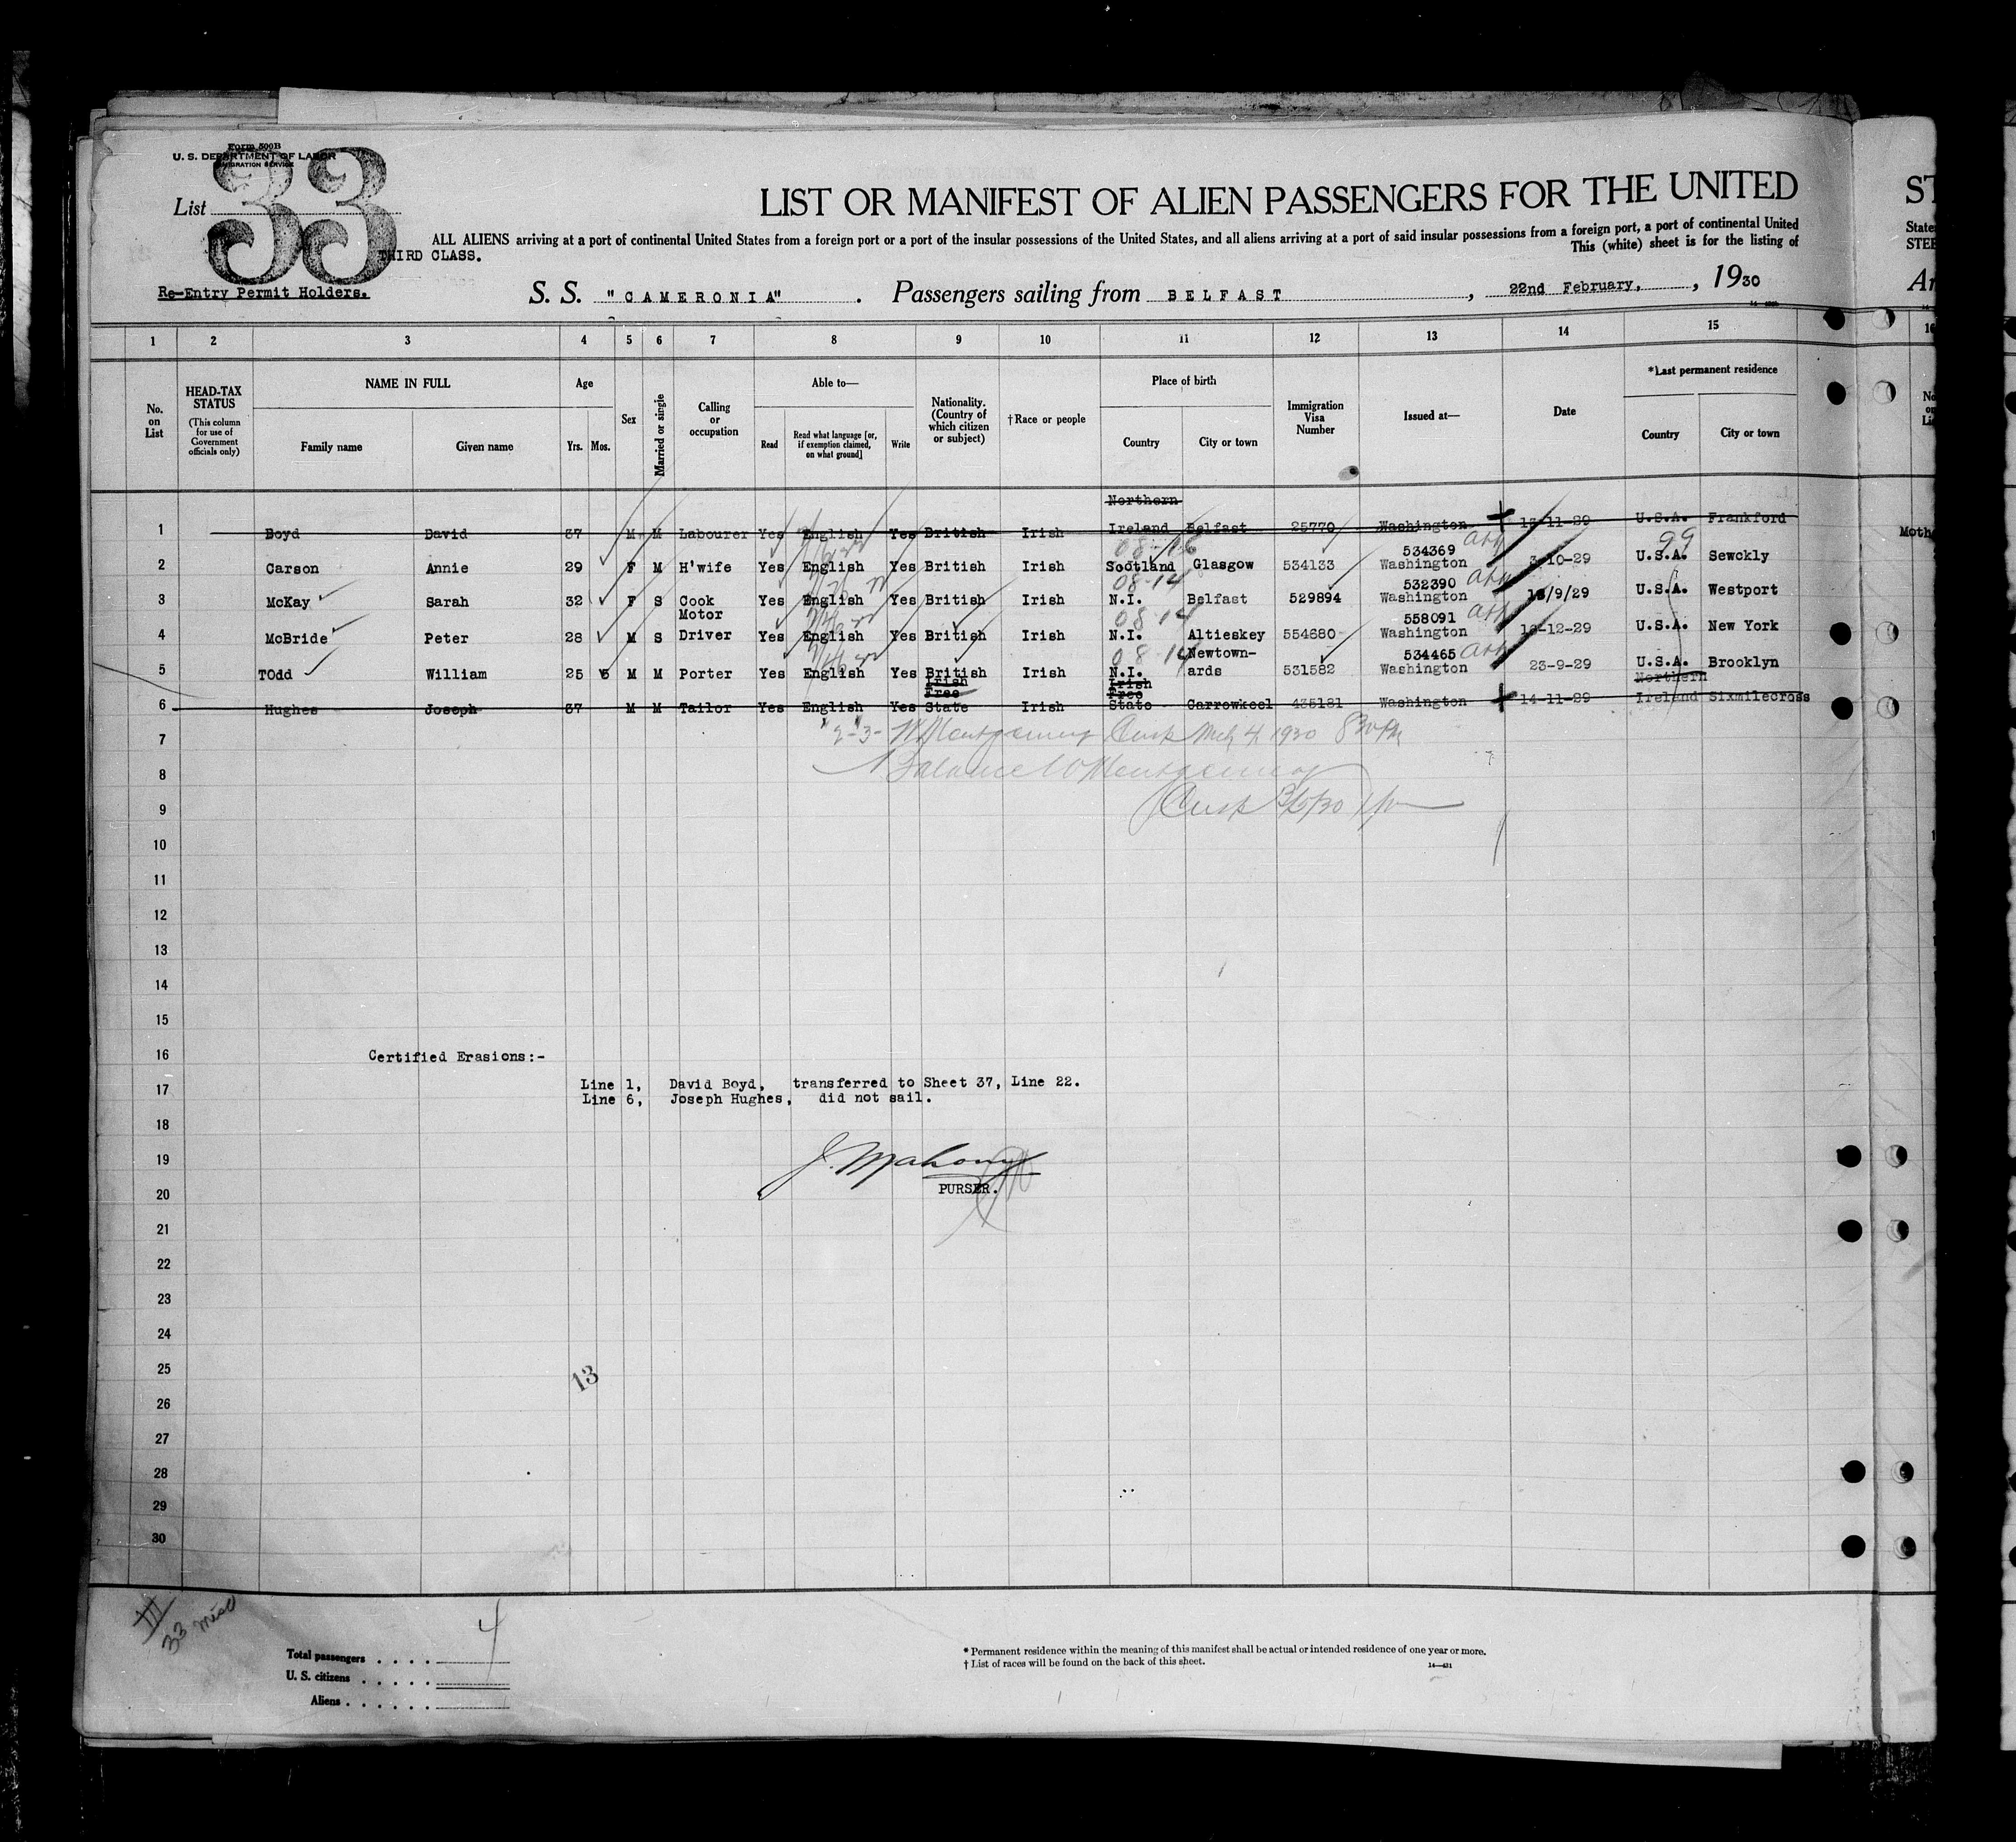 Form 500B
U. S. DEPARTMENT OF LABOR
IMMIGRATION SERVICE
List 33
LIST OR MANIFEST OF ALIEN PASSENGERS FOR THE UNITED
ST
ALL ALIENS arriving at a port of continental United States from a foreign port or a port of the insular possessions of the United States, and all aliens arriving at a port of said insular possessions from a foreign port, a port of continental United
THIRD CLASS.
This (white) sheet is for the listing of
Re-Entry Permit Holders.
S. S. "CAMERONIA". Passengers sailing from BELFAST, 22nd February, , 1930
1 2 3 4 5 6 7 8 9 10 11 12 13 14 15
No. on List
HEAD-TAX STATUS
(This column for use of Government officials only)
NAME IN FULL
Family name Given name
Age
Yrs. Mos.
Sex
Married or single
Calling or occupation
Able to—
Read
Read what language [or, if exemption claimed, on what ground]
Write
Nationality. (Country of which citizen or subject)
†Race or people
Place of birth
Country City or town
Immigration Visa Number
Issued at—
Date
*Last permanent residence
Country City or town
Northern
1 Boyd David 37 M M Labourer Yes English Yes British Irish Ireland Belfast 25770 Washington 13-11-29 U.S.A. Frankford
Moth
08-16
99
534369
2 Carson Annie 29 F M H'wife Yes English Yes British Irish Scotland Glasgow 534133 Washington 3-10-29 U.S.A. Sewckly
08-14
532390
3 McKay Sarah 32 F S Cook Yes English Yes British Irish N.I. Belfast 529894 Washington /9/29 U.S.A. Westport
08-14
558091
4 McBride Peter 28 M S Motor Driver Yes English Yes British Irish N.I. Altieskey 554680 Washington -12-29 U.S.A. New York
08-14
534465
5 TOdd William 25 M M Porter Yes English Yes British Irish N.I. Newtown-ards 531582 Washington 23-9-29 U.S.A. Brooklyn
6 Hughes Joseph 37 M M Tailor Yes English Yes Irish Free State Irish Irish Free State Carrowkeel 435181 Washington 14-11-29 Northern Ireland Sixmilecross
7 2-3- W Montgomery 4 1930
8 Balance W Montgomery
9
10
11
12
13
14
15
16 Certified Erasions:-
17 Line 1, David Boyd, transferred to Sheet 37, Line 22.
Line 6, Joseph Hughes, did not sail.
18
19 J. Mahony
20 PURSER.
21
22
23
24
25 13
26
27
28
29
30
III
33 misc
4
Total passengers
U. S. citizens
Aliens
* Permanent residence within the meaning of this manifest shall be actual or intended residence of one year or more.
† List of races will be found on the back of this sheet.